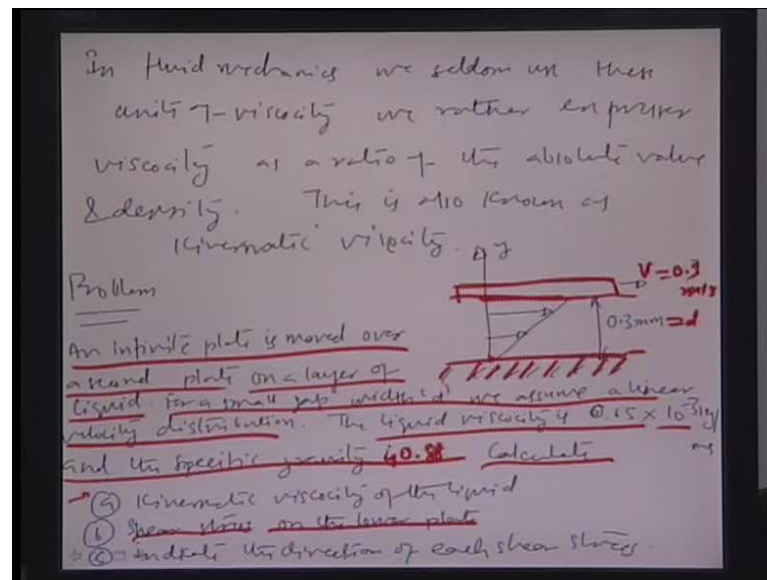 In fluid mechanics we seldom use these
units of viscosity we rather express
viscosity as a ratio of the absolute value
& density. This is also known as
Kinematic viscosity.
y
V = 0.3
m/s
0.3mm = d
Problem
An infinite plate is moved over
a second plate on a layer of
liquid. For a small gap width 'd' we assume a linear
velocity distribution. The liquid viscosity is 0.65 × 10⁻³ kg/
ms
and the specific gravity 0.88 Calculate
(a) Kinematic viscosity of the liquid
(b) Shear stress on the lower plate
(c) Indicate the direction of each shear stress.